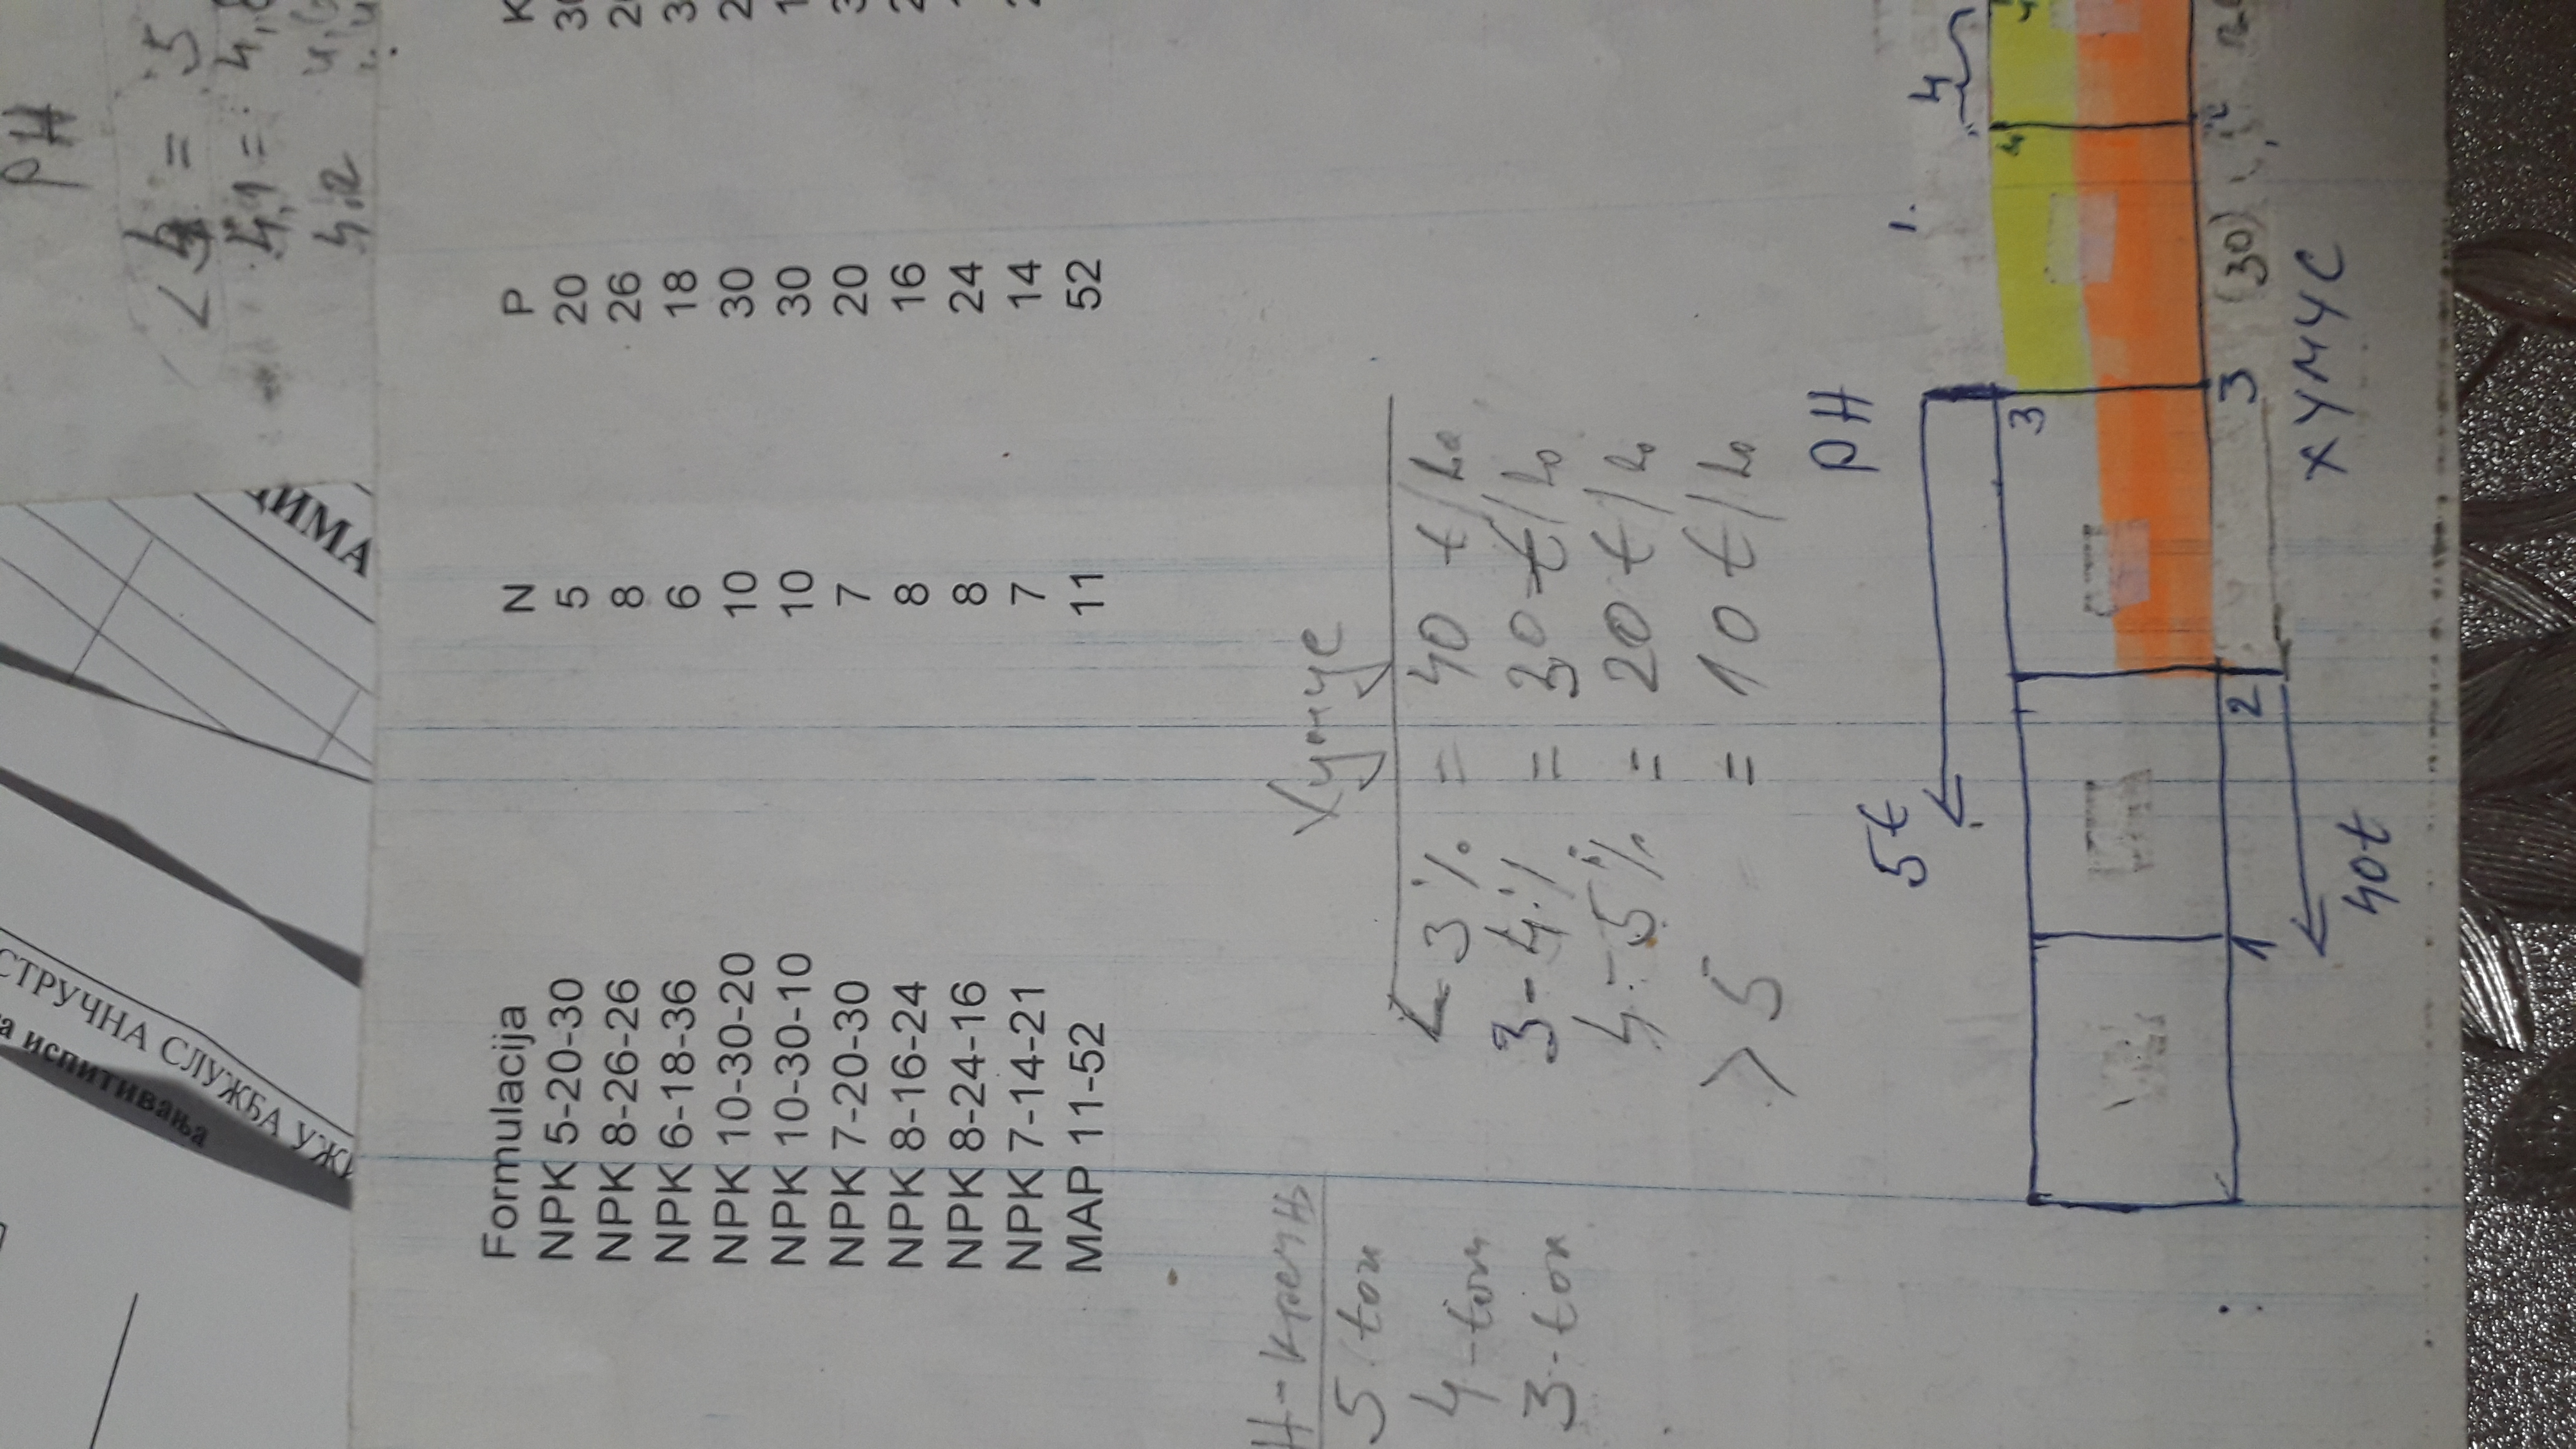 СТРУЧНА СЛУЖБА УЖ
а испитивања
ЦИМА
PH
< 4 = 5
4,1 = 4,8
4.2
Formulacija N P K
NPK 5-20-30 5 20 30
NPK 8-26-26 8 26 2
NPK 6-18-36 6 18 3
NPK 10-30-20 10 30 2
NPK 10-30-10 10 30 1
NPK 7-20-30 7 20 3
NPK 8-16-24 8 16 2
NPK 8-24-16 8 24 1
NPK 7-14-21 7 14 2
MAP 11-52 11 52
Н-кречњ
5 ton
4-ton
3-ton
Хумус
< 3% = 40 t/ha
3-4% = 30 t/ha
4-5% = 20 t/ha
>5 = 10 t/ha
PH
5t
1.
4
3 4
1 2 3 (30)
40t
ХУМУС